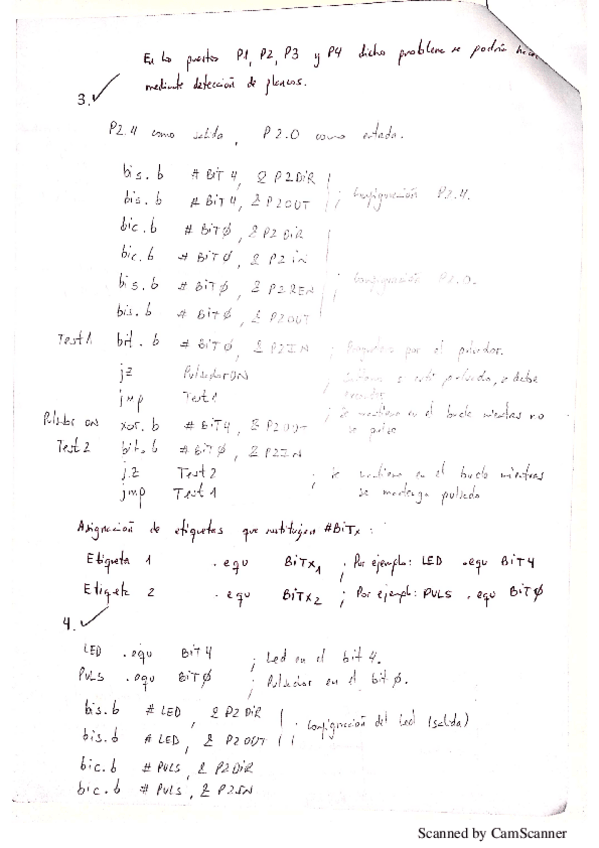 En los puertos P1, P2, P3 y P4 dicho problema se podría hacer
mediante detección de flancos.
3. ✓
P2.4 como salida, P2.0 como entrada.
bis.b #BIT4, &P2DIR
bis.b #BIT4, &P2OUT ; Configuración P2.4.
bic.b #BITØ, &P2DIR
bic.b #BITØ, &P2IN
bis.b #BITØ, &P2REN ; Configuración P2.0.
bis.b #BITØ, &P2OUT
Test1 bit.b #BITØ, &P2IN ; por el pulsador.
jz PulsadorON ; si está pulsado, se debe
jmp Test1 ; Se mantiene en el bucle mientras no
Pulsador ON xor.b #BIT4, &P2OUT se pulse
Test2 bit.b #BITØ, &P2IN
jz Test2 ; Se mantiene en el bucle mientras
jmp Test1 se mantenga pulsado
Asignación de etiquetas que sustituyen #BITx:
Etiqueta 1 .equ BITx1 ; Por ejemplo: LED .equ BIT4
Etiqueta 2 .equ BITx2 ; Por ejemplo: PULS .equ BITØ
4. ✓
LED .equ BIT4 ; Led en el bit 4.
PULS .equ BITØ ; Pulsador en el bit Ø.
bis.b #LED, &P2DIR ; Configuración del led (salida)
bis.b #LED, &P2OUT
bic.b #PULS, &P2DIR
bic.b #PULS, &P2IN
Scanned by CamScanner